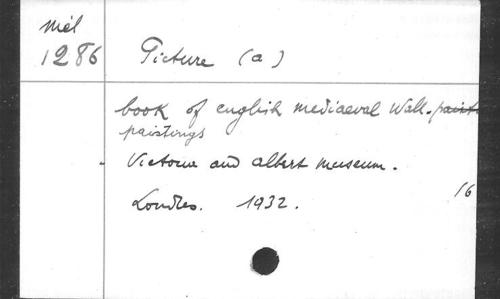 Mél
1286
Picture (a)
book of english mediaeval Wall-paint
paintings
Victoria and albert museum.
Londres. 1932.
16